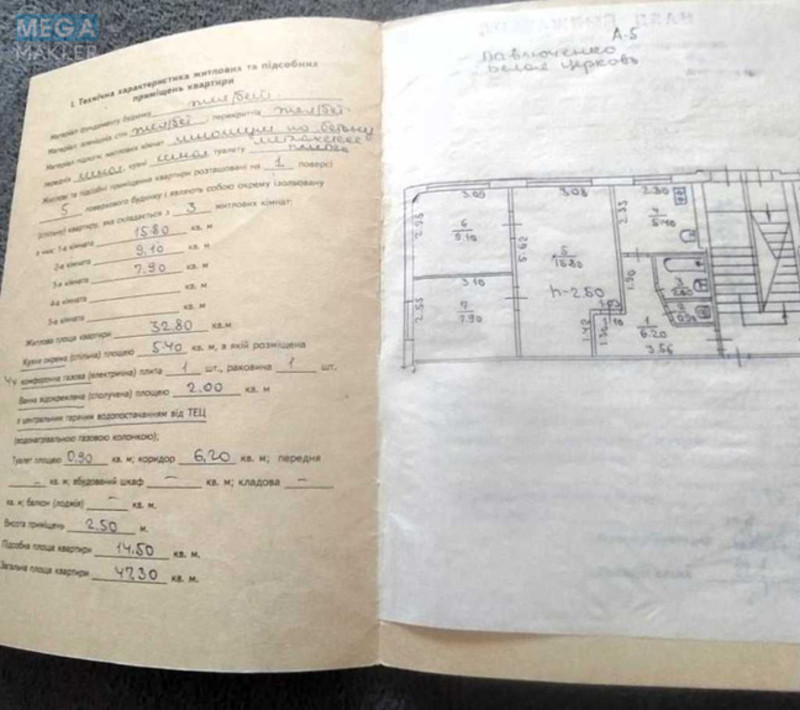 MEGA
МАКЛЕР
I. Технічна характеристика житлових та підсобних
приміщень квартири
Матеріал фундаменту будинку жел/бет.
Матеріал зовнішніх стін жел/бет, перекриття жел/бет
Матеріал підлоги: житлових кімнат линолеум по бетону
передня линол кухні линол туалету плитка
Житлові та підсобні приміщення квартири розташовані на 1 поверсі
5 поверхового будинку і являють собою окрему ізольовану
(спільну) квартиру, яка складається з 3 житлових кімнат:
з них: 1-а кімната 15.80 кв. м
2-а кімната 9.10 кв. м
3-а кімната 7.90 кв. м
4-а кімната кв. м
5-а кімната кв. м
Житлова площа квартири 32.80 кв.м
Кухня окрема (спільна) площею 5.40 кв. м, в якій розміщена
4х комфорочна газова (електрична) плита 1 шт., раковина 1 шт.
Ванна відокремлена (сполучена) площею 2.00 кв. м
з центральним гарячим водопостачанням від ТЕЦ
(водонагрівальною газовою колонкою);
Туалет площею 0.90 кв. м; коридор 6.20 кв. м; передня
– кв. м; вбудований шкаф – кв. м; кладова –
кв. м; балкон (лоджія) – кв. м.
Висота приміщень 2.50 м.
Підсобна площа квартири 14.50 кв. м.
Загальна площа квартири 47.30 кв. м.
А-5
Павлюченко
Белая Церковь
3.05
3.08
2.30
2.95
6
9.10
5.62
5
15.80
2.35
4
5.40
3.10
h-2.50
1.90
3
2.00
2.55
7
7.90
2
0.90
1.42
1
6.20
3.56